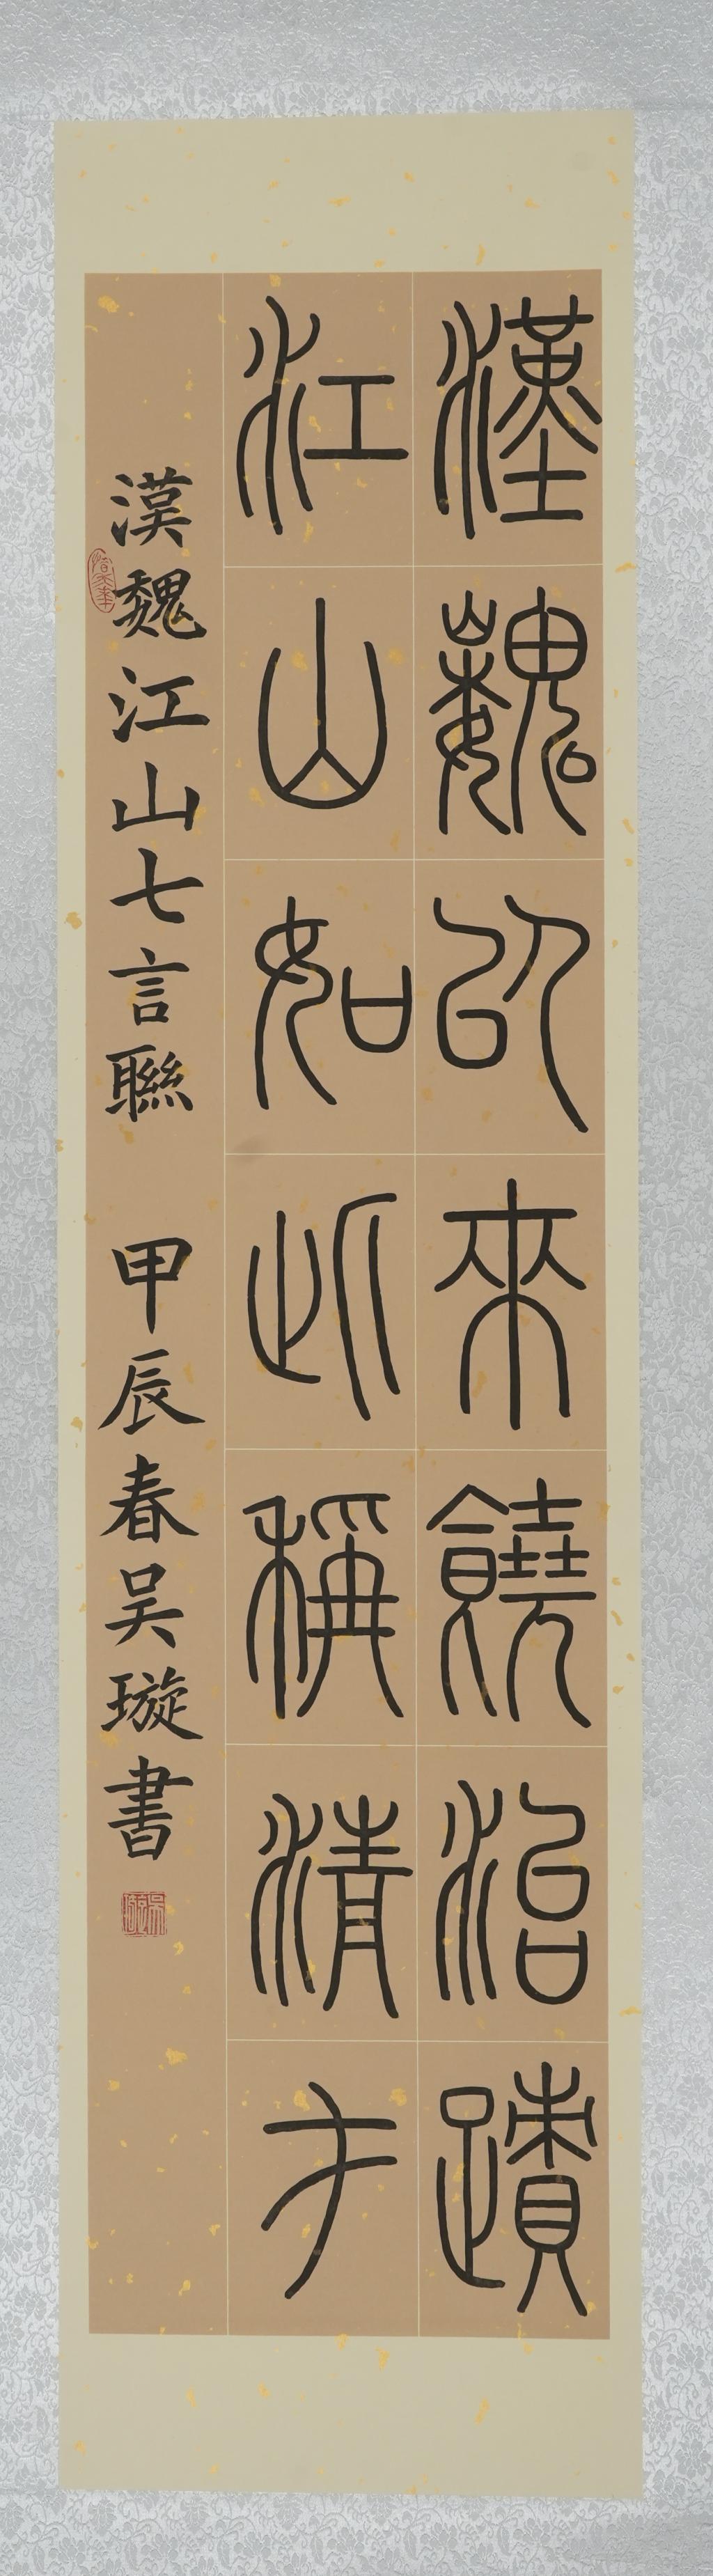 漢魏以來饒治蹟
江山如此稱清才
漢魏江山七言聯 甲辰春吴璇書